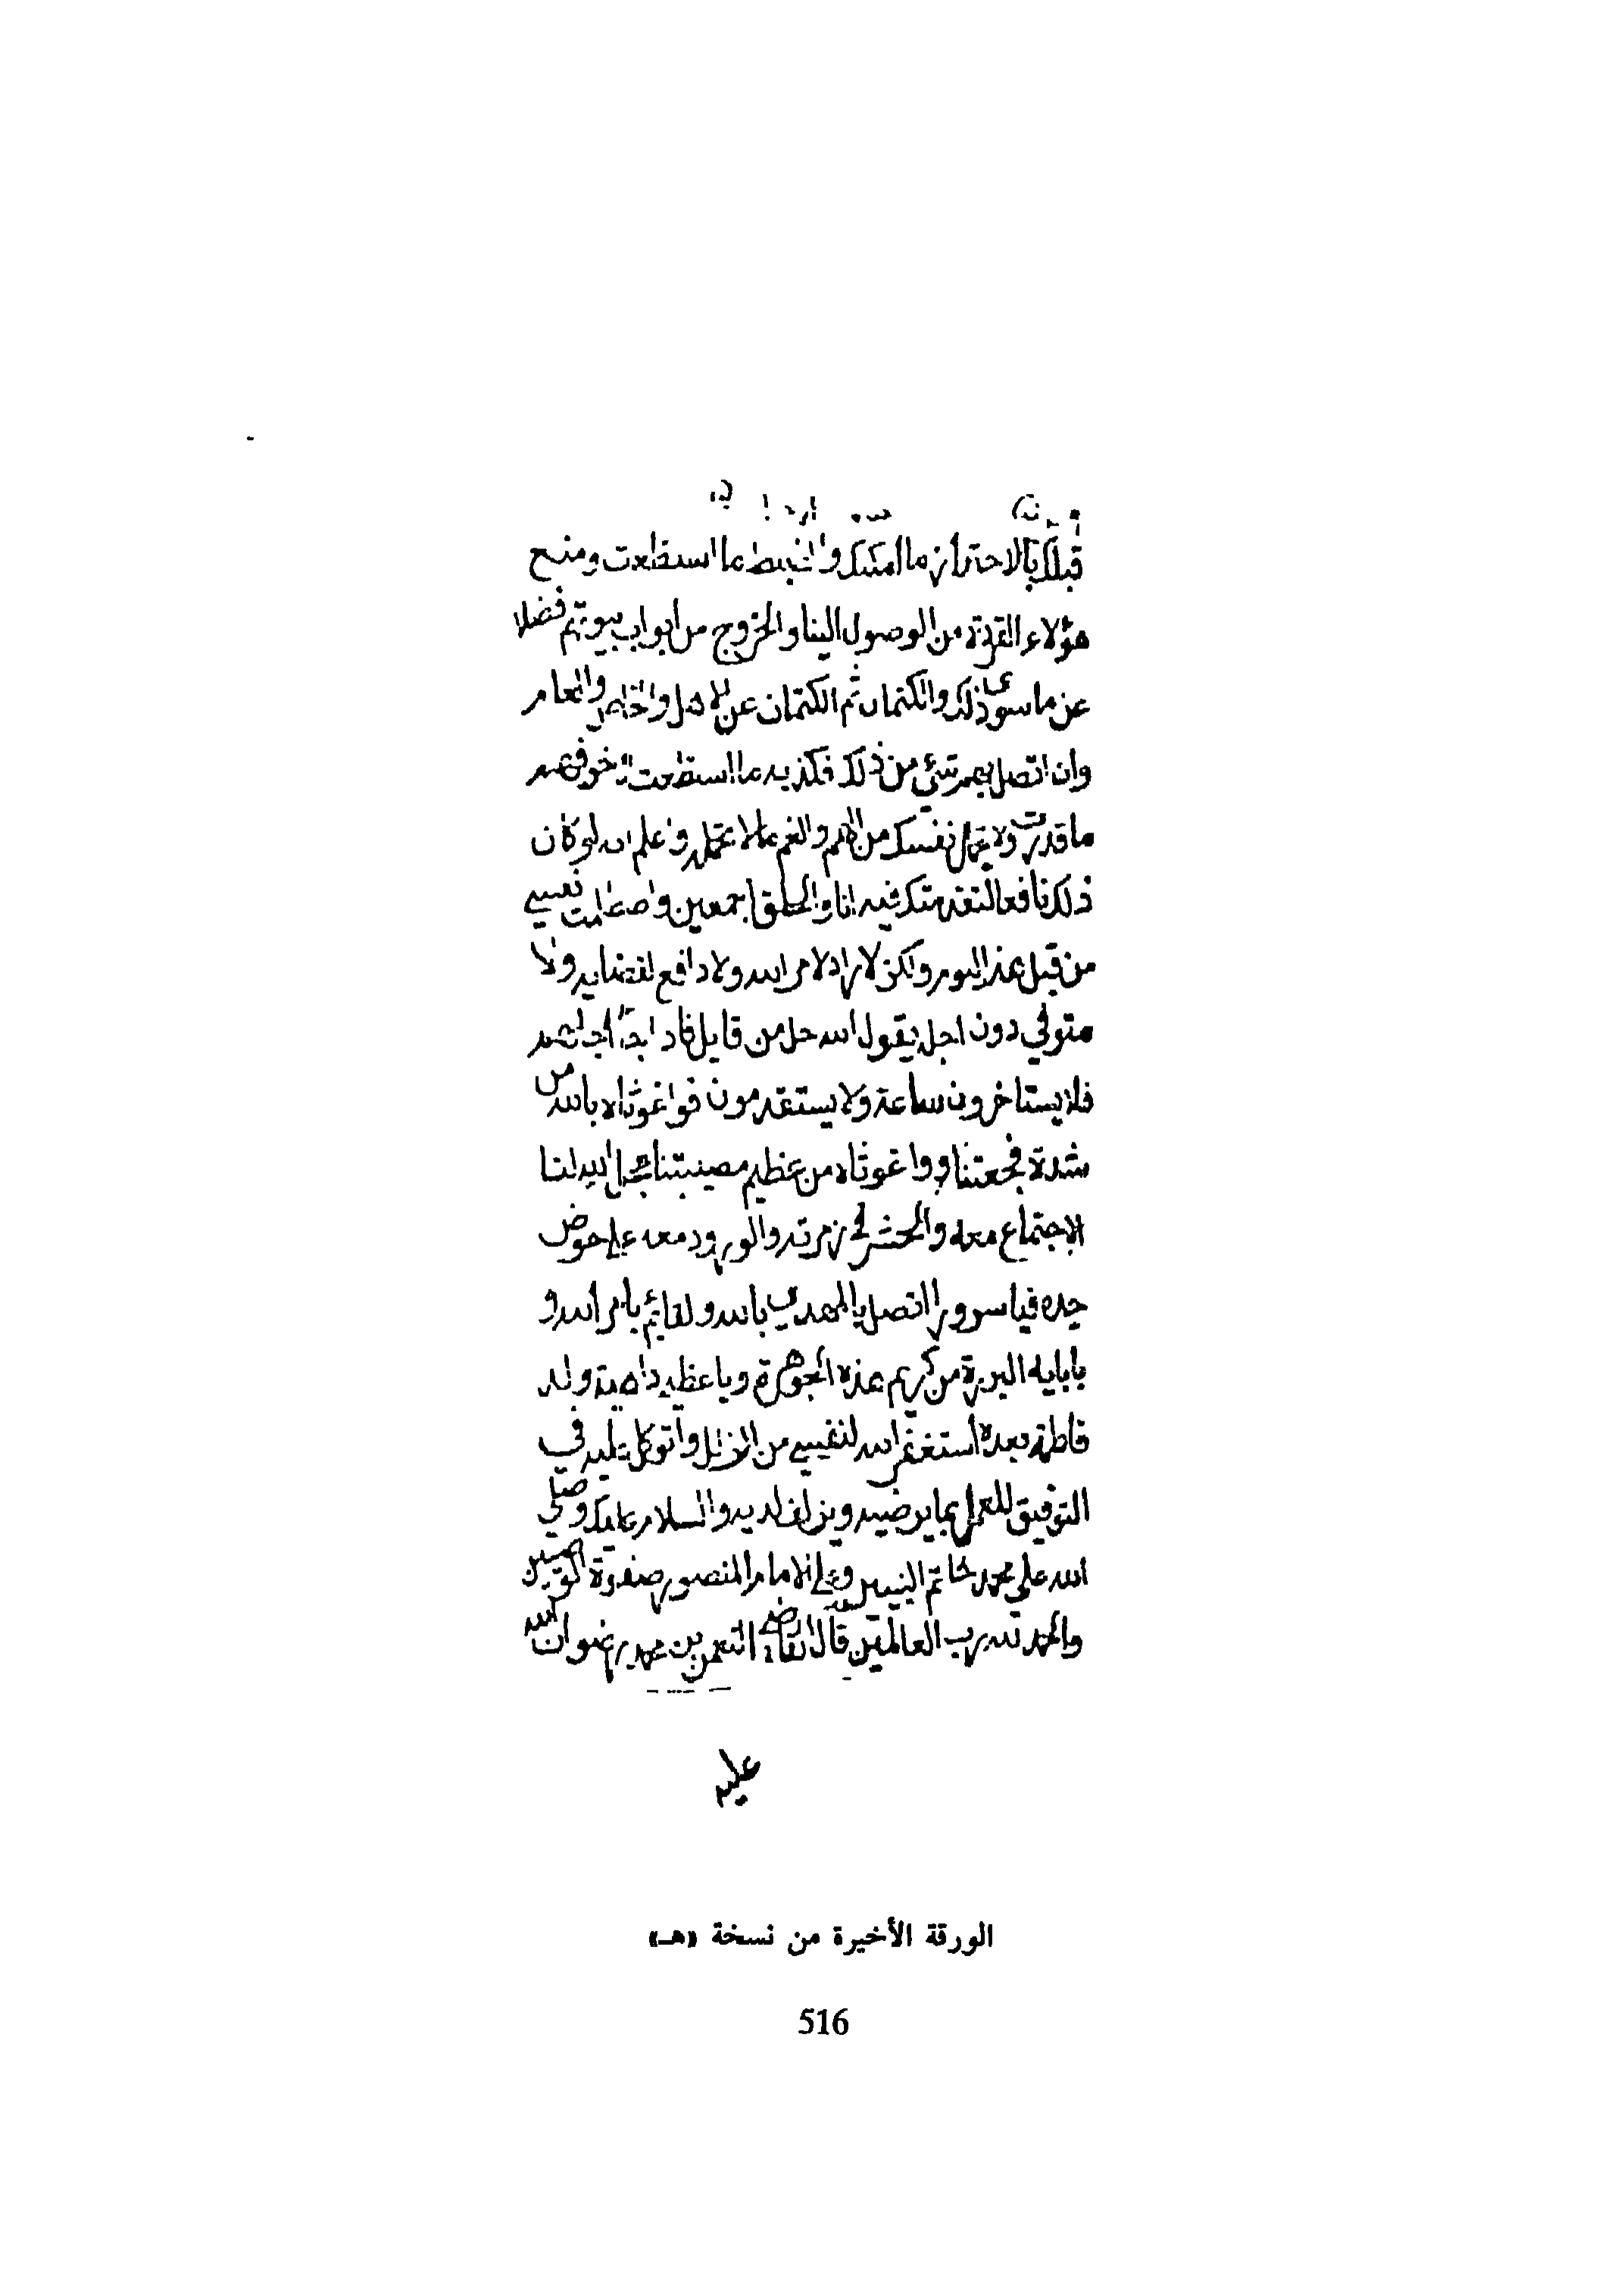 قبلك بالاحتراز ما امكنك والضبط ما استطعت ومنع
هؤلاء القردة من الوصول الينا والخروج من ابواب بيوتهم فضلا
عن ما سوى ذلك والكتمان ثم الكتمان عن الاهل والخاص والعام
وان اتصل بهم شيء من ذلك فكذبه ما استطعت وخوفهم
ما قدرت ولا تحمل نفسك من الهم والغم مالا تحمله واعلم انه لو كان
ذلك نافعا لتقدمتك فيه انا والخلق اجمعين نفسي
من قبل هذا اليوم ولكن لا راد لامر الله ولا دافع لقضايه ولا
متوفي دون اجله يقول الله جل من قايل فاذا جاء اجلهم
فلا يستاخرون ساعة ولا يستقدمون فواغوثاه بالله من
شدة فجعتنا وواغوثاه من عظيم مصيبتنا عجل الله لنا
الاجتماع معه والحشر في زمرته والورود معه على حوض
جده فيا سرور اتصل بالمهدي بالله ولقايم بامر الله و
بابايه البررة من كريم هذه الجوهرة ويا عظيم داهية ولد
فاطمة بعده استغفر الله لنفسي من الزلل واتوكل عليه في
التوفيق للعمل بما يرضيه ويزلف لديه والسلام عليك وصلى
الله على محمد خاتم النبيين وعلى الامام المنصور صفوة
والحمد لله رب العالمين قال القاضي النعمن بن محمد رضوان الله
عليه
الورقة الأخيرة من نسخة «هـ»
516